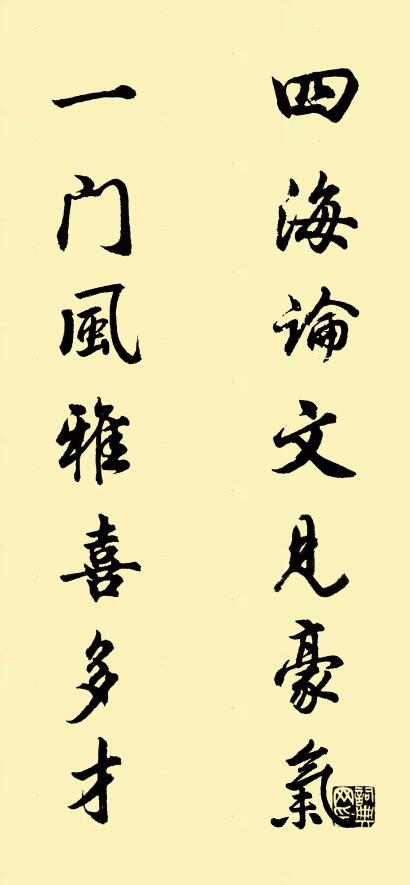 四海論文見豪氣
一门風雅喜多才
詞典网印